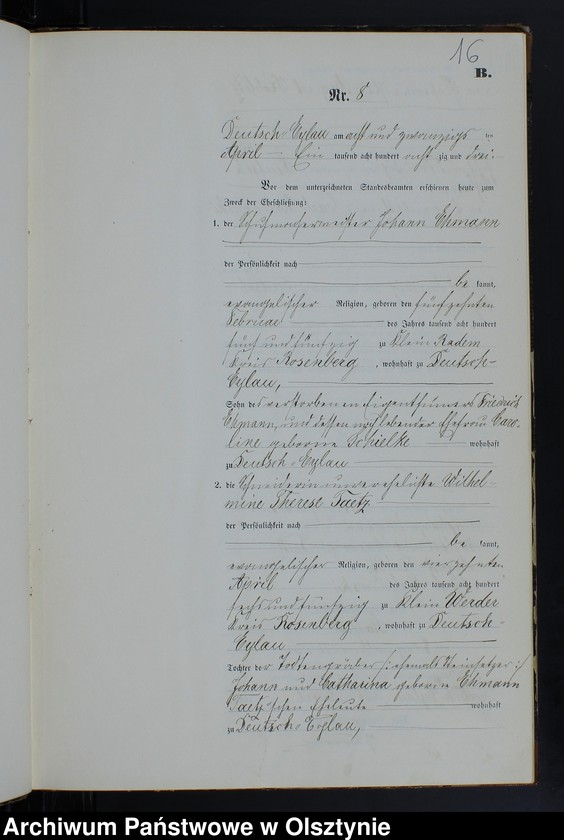 16
B.
Nr. 8
Deutsch-Eylau am acht und zwanzigsten
April Ein tausend acht hundert achtzig und drei.
Vor dem unterzeichneten Standesbeamten erschienen heute zum
Zweck der Eheschließung:
1. der Schuhmachermeister Johann Ehmann
der Persönlichkeit nach
be kannt,
evangelischer Religion, geboren den fünfzehnten
Februar des Jahres tausend acht hundert
fünf und fünfzig zu Klein Radem
Kreis Rosenberg, wohnhaft zu Deutsch-
Eylau,
Sohn des verstorbenen Eigenthümers Friedrich
Ehmann, und dessen noch lebender Ehefrau Caro-
line geborene Schielke wohnhaft
zu Deutsch-Eylau
2. die Schneiderin unverehelichte Wilhel-
mine Therese Taetz
der Persönlichkeit nach
be kannt,
evangelischer Religion, geboren den vierzehnten
April des Jahres tausend acht hundert
sechs und fünfzig zu Klein Werder
Kreis Rosenberg, wohnhaft zu Deutsch-
Eylau
Tochter der Todtengräber (: ehemals Steinsetzer :)
Johann und Catharina geborene Ehmann
Taetz'schen Eheleute wohnhaft
zu Deutsch-Eylau,
Archiwum Państwowe w Olsztynie